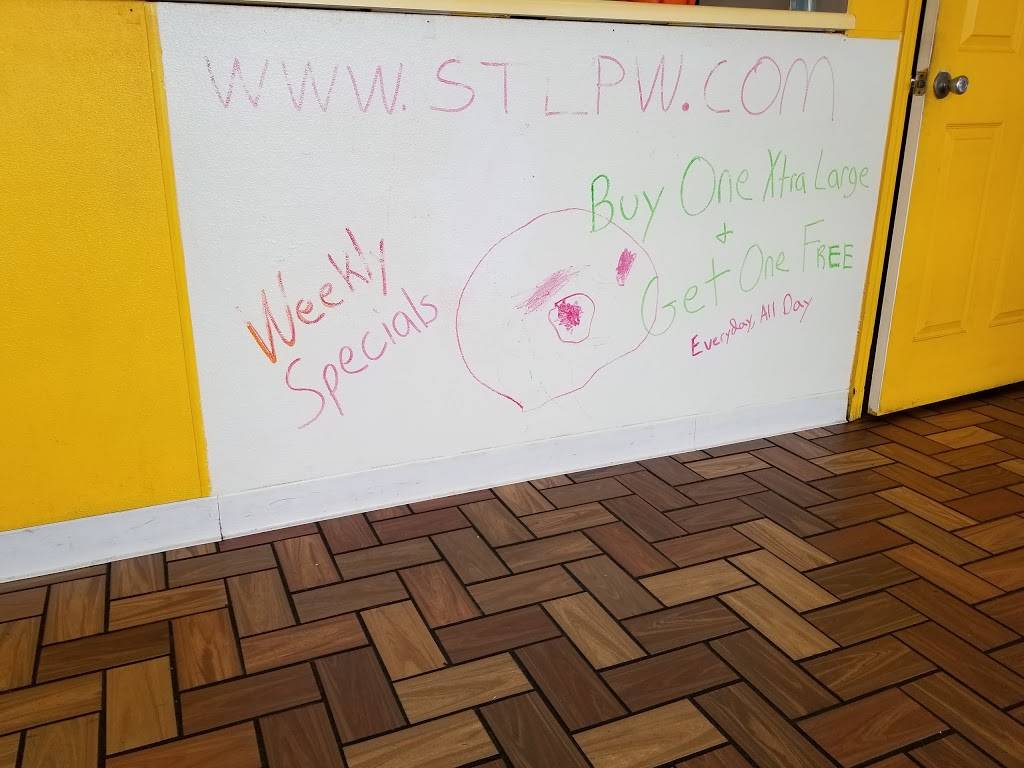 WWW.STLPW.COM
Weekly
Specials
Buy One Xtra Large
+
Get One FREE
Everyday, All Day